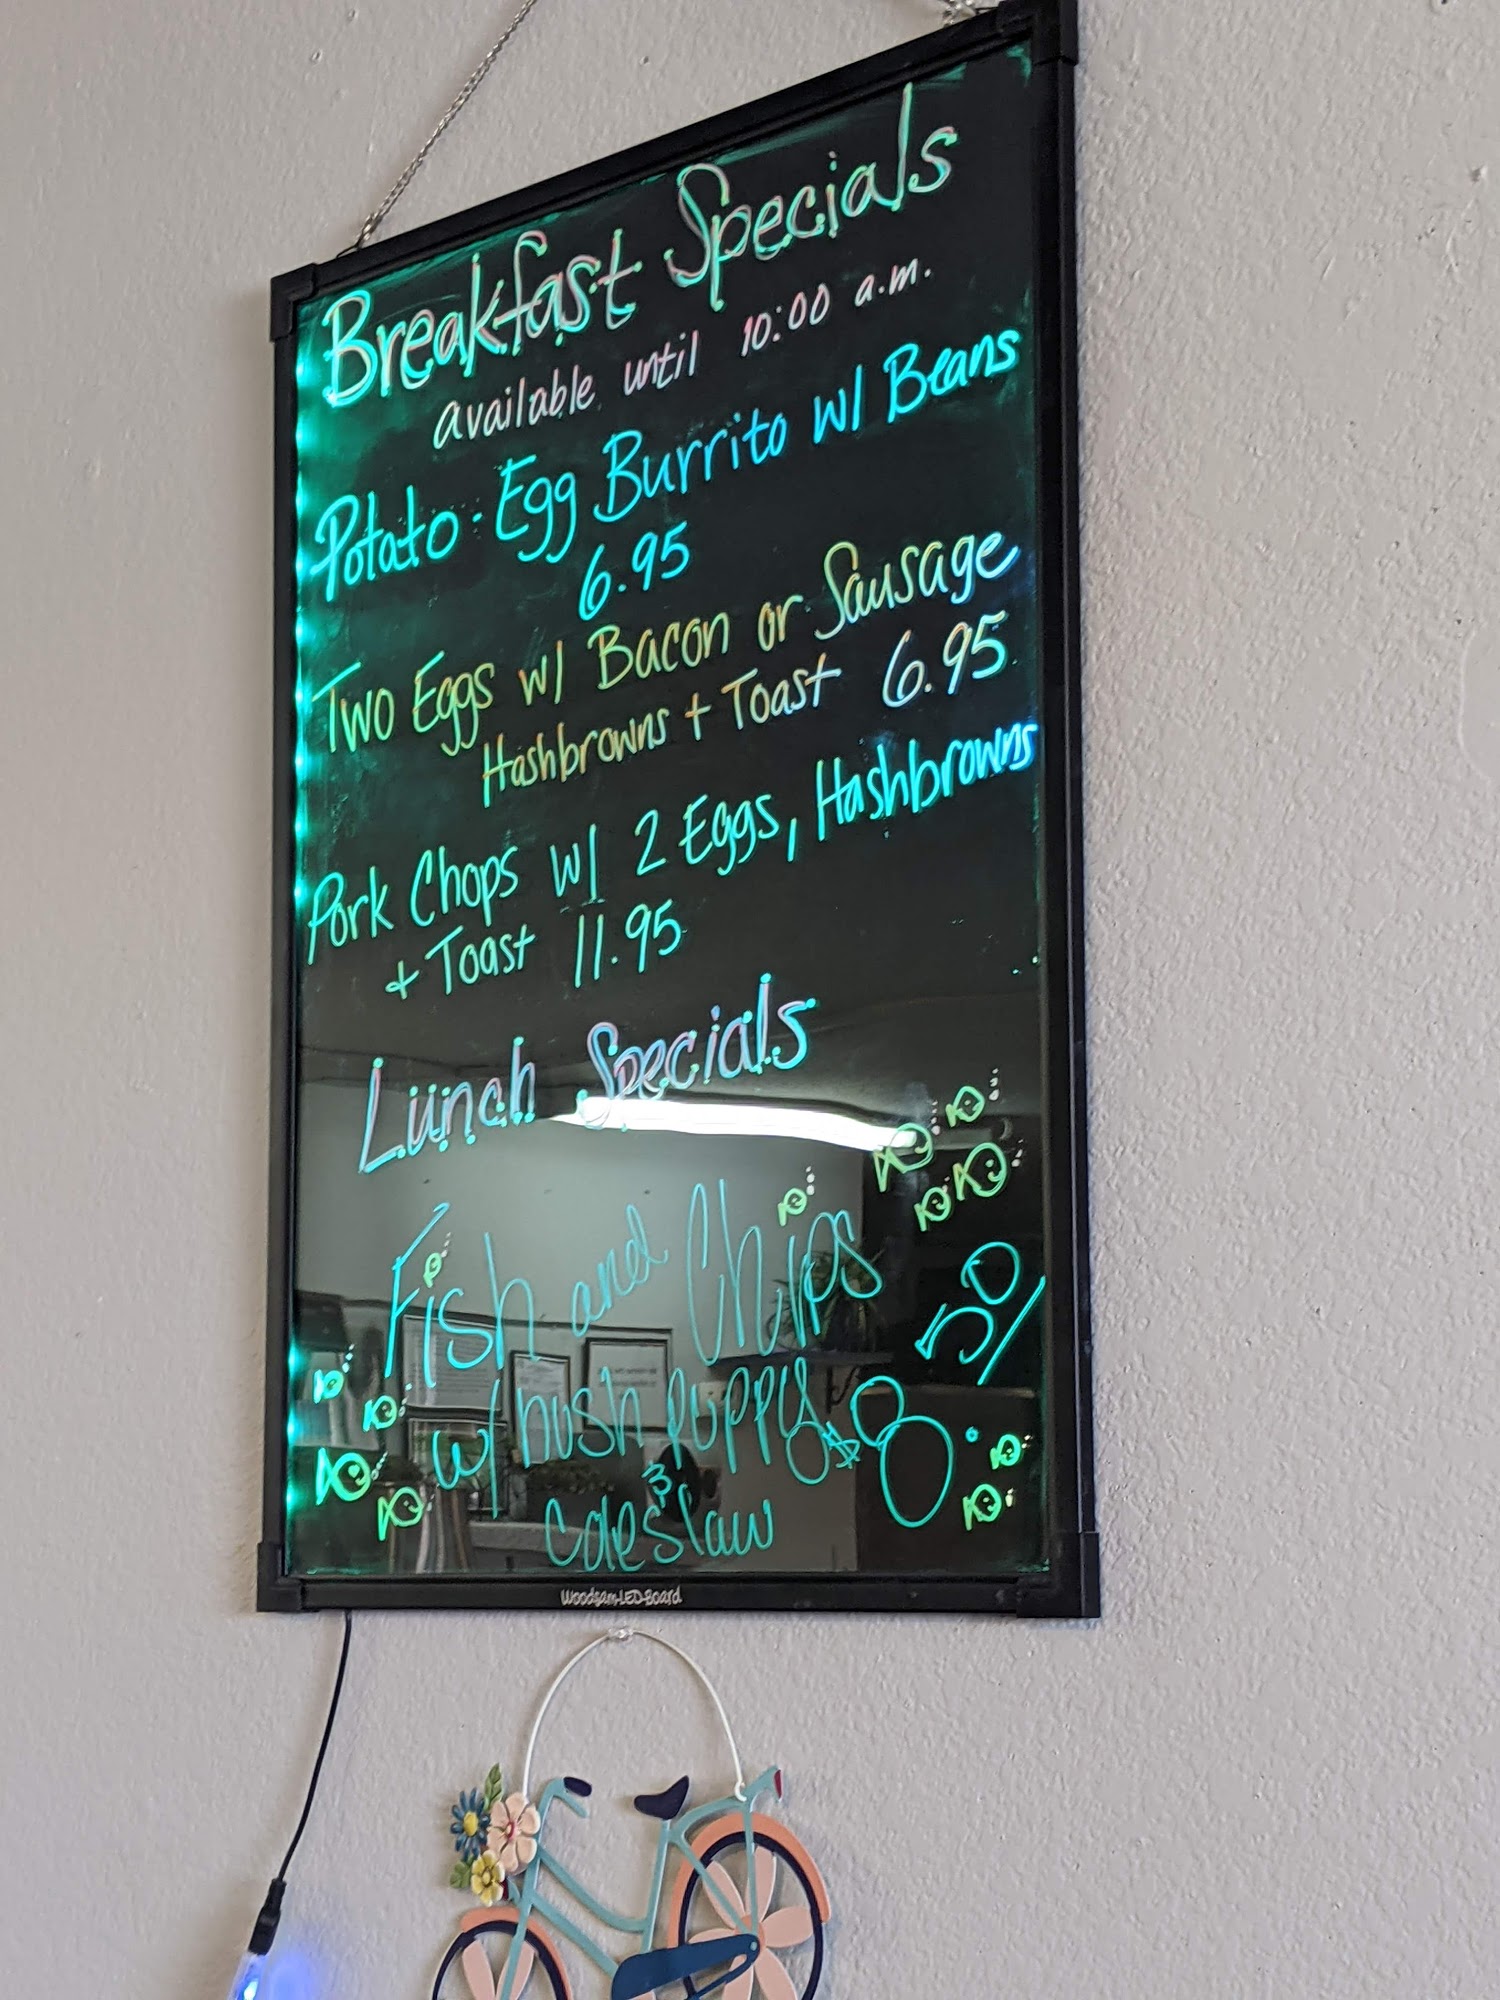 Breakfast Specials
available until 10:00 a.m.
Potato Egg Burrito w/ Beans
6.95
Two Eggs w/ Bacon or Sausage
Hashbrowns + Toast 6.95
Pork Chops w/ 2 Eggs, Hashbrowns
+ Toast 11.95
Lunch Specials
Fish and Chips
w/ hush puppys $8.50/
& coleslaw
Woodsam-LED-Board